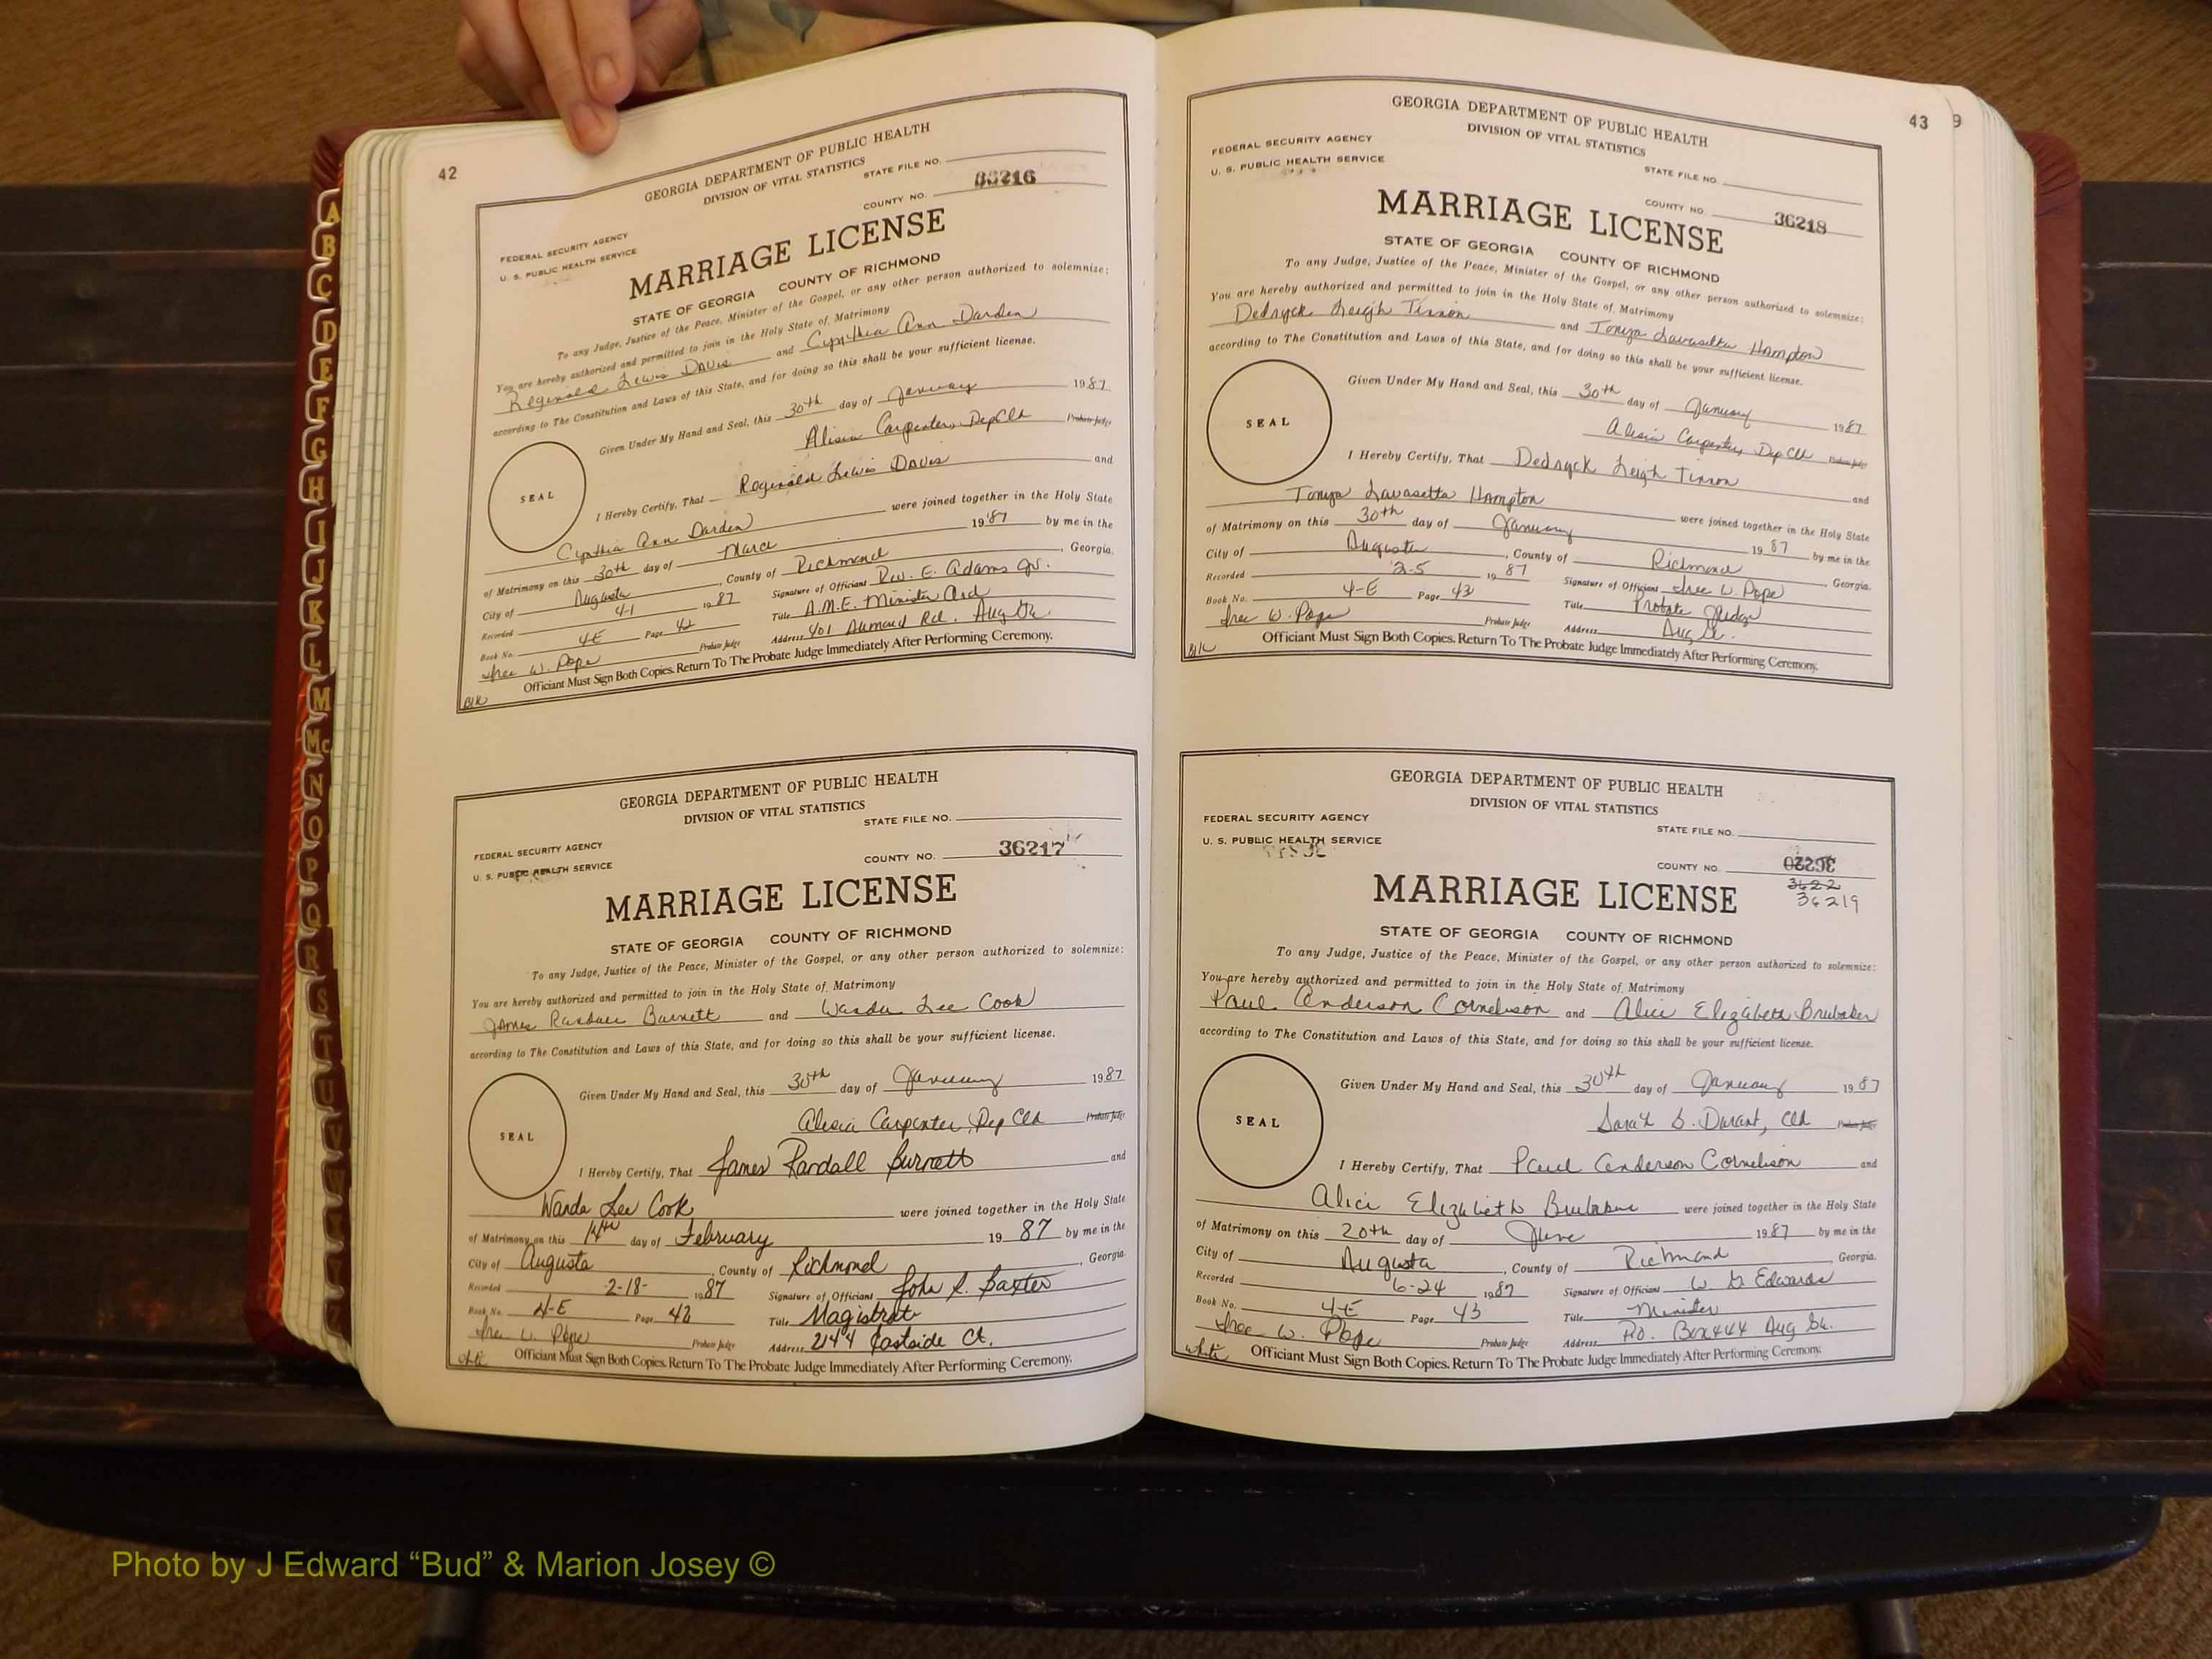 42
GEORGIA DEPARTMENT OF PUBLIC HEALTH
DIVISION OF VITAL STATISTICS
STATE FILE NO.
FEDERAL SECURITY AGENCY
U. S. PUBLIC HEALTH SERVICE
COUNTY NO. 36216
MARRIAGE LICENSE
STATE OF GEORGIA COUNTY OF RICHMOND
To any Judge, Justice of the Peace, Minister of the Gospel, or any other person authorized to solemnize:
You are hereby authorized and permitted to join in the Holy State of Matrimony
Reginald Lewis Davis and Cynthia Ann Darden
according to The Constitution and Laws of this State, and for doing so this shall be your sufficient license.
Given Under My Hand and Seal, this 30th day of January 1987
Alisia Carpenter, Dep Clk Probate Judge
SEAL
I Hereby Certify, That Reginald Lewis Davis and
Cynthia Ann Darden were joined together in the Holy State
of Matrimony on this 30th day of 1987 by me in the
City of Augusta, County of Richmond, Georgia.
Recorded 4-1 1987 Signature of Officiant Rev. E. Adams Jr.
Book No. 4E Page 42 Title A.M.E. Minister
W. Pope Probate Judge Address 401 Rd. Aug
Blk
Officiant Must Sign Both Copies. Return To The Probate Judge Immediately After Performing Ceremony.
GEORGIA DEPARTMENT OF PUBLIC HEALTH
DIVISION OF VITAL STATISTICS
STATE FILE NO.
FEDERAL SECURITY AGENCY
U. S. PUBLIC HEALTH SERVICE
COUNTY NO. 36217
MARRIAGE LICENSE
STATE OF GEORGIA COUNTY OF RICHMOND
To any Judge, Justice of the Peace, Minister of the Gospel, or any other person authorized to solemnize:
You are hereby authorized and permitted to join in the Holy State of Matrimony
James Randall Burnett and Wanda Lee Cook
according to The Constitution and Laws of this State, and for doing so this shall be your sufficient license.
Given Under My Hand and Seal, this 30th day of January 1987
Alisia Carpenter, Dep Clk Probate Judge
SEAL
I Hereby Certify, That James Randall Burnett and
Wanda Lee Cook were joined together in the Holy State
of Matrimony on this 14th day of February 1987 by me in the
City of Augusta, County of Richmond, Georgia.
Recorded 2-18- 1987 Signature of Officiant John R. Baxter
Book No. 4-E Page Title Magistrate
W. Pope Probate Judge Address 2144 Eastside Ct.
white
Officiant Must Sign Both Copies. Return To The Probate Judge Immediately After Performing Ceremony.
43 9
GEORGIA DEPARTMENT OF PUBLIC HEALTH
DIVISION OF VITAL STATISTICS
FEDERAL SECURITY AGENCY
U. S. PUBLIC HEALTH SERVICE
STATE FILE NO.
COUNTY NO. 36218
MARRIAGE LICENSE
STATE OF GEORGIA COUNTY OF RICHMOND
To any Judge, Justice of the Peace, Minister of the Gospel, or any other person authorized to solemnize:
You are hereby authorized and permitted to join in the Holy State of Matrimony
Dedryck Leigh Tinson and Tonya Lavasetta Hampton
according to The Constitution and Laws of this State, and for doing so this shall be your sufficient license.
Given Under My Hand and Seal, this 30th day of January 1987
Alisia Carpenter, Dep Clk Probate Judge
SEAL
I Hereby Certify, That Dedryck Leigh Tinson and
Tonya Lavasetta Hampton were joined together in the Holy State
of Matrimony on this 30th day of January 1987 by me in the
City of Augusta, County of Richmond, Georgia.
Recorded 2-5 1987 Signature of Officiant W. Pope
Book No. 4-E Page 43 Title Probate Judge
W. Pope Probate Judge Address Aug Ga.
Blk
Officiant Must Sign Both Copies. Return To The Probate Judge Immediately After Performing Ceremony.
GEORGIA DEPARTMENT OF PUBLIC HEALTH
DIVISION OF VITAL STATISTICS
FEDERAL SECURITY AGENCY
STATE FILE NO.
U. S. PUBLIC HEALTH SERVICE
COUNTY NO. 36220
3622
36219
MARRIAGE LICENSE
STATE OF GEORGIA COUNTY OF RICHMOND
To any Judge, Justice of the Peace, Minister of the Gospel, or any other person authorized to solemnize:
You are hereby authorized and permitted to join in the Holy State of Matrimony
Paul Anderson Cornelison and Alice Elizabeth Brubaker
according to The Constitution and Laws of this State, and for doing so this shall be your sufficient license.
Given Under My Hand and Seal, this 30th day of January 1987
Sarah S. Durant, Clk Probate Judge
SEAL
I Hereby Certify, That Paul Anderson Cornelison and
Alice Elizabeth Brubaker were joined together in the Holy State
of Matrimony on this 20th day of June 1987 by me in the
City of Augusta, County of Richmond Georgia.
Recorded 6-24 1987 Signature of Officiant W G Edwards
Book No. 4-E Page 43 Title Minister
W. Pope Probate Judge Address P.O. Box 444 Aug Ga.
white
Officiant Must Sign Both Copies. Return To The Probate Judge Immediately After Performing Ceremony.
A
B
C
D
E
F
G
H
I
J
K
L
M
Mc
N
O
P
Q
R
S
T
U
V
Photo by J Edward “Bud” & Marion Josey ©